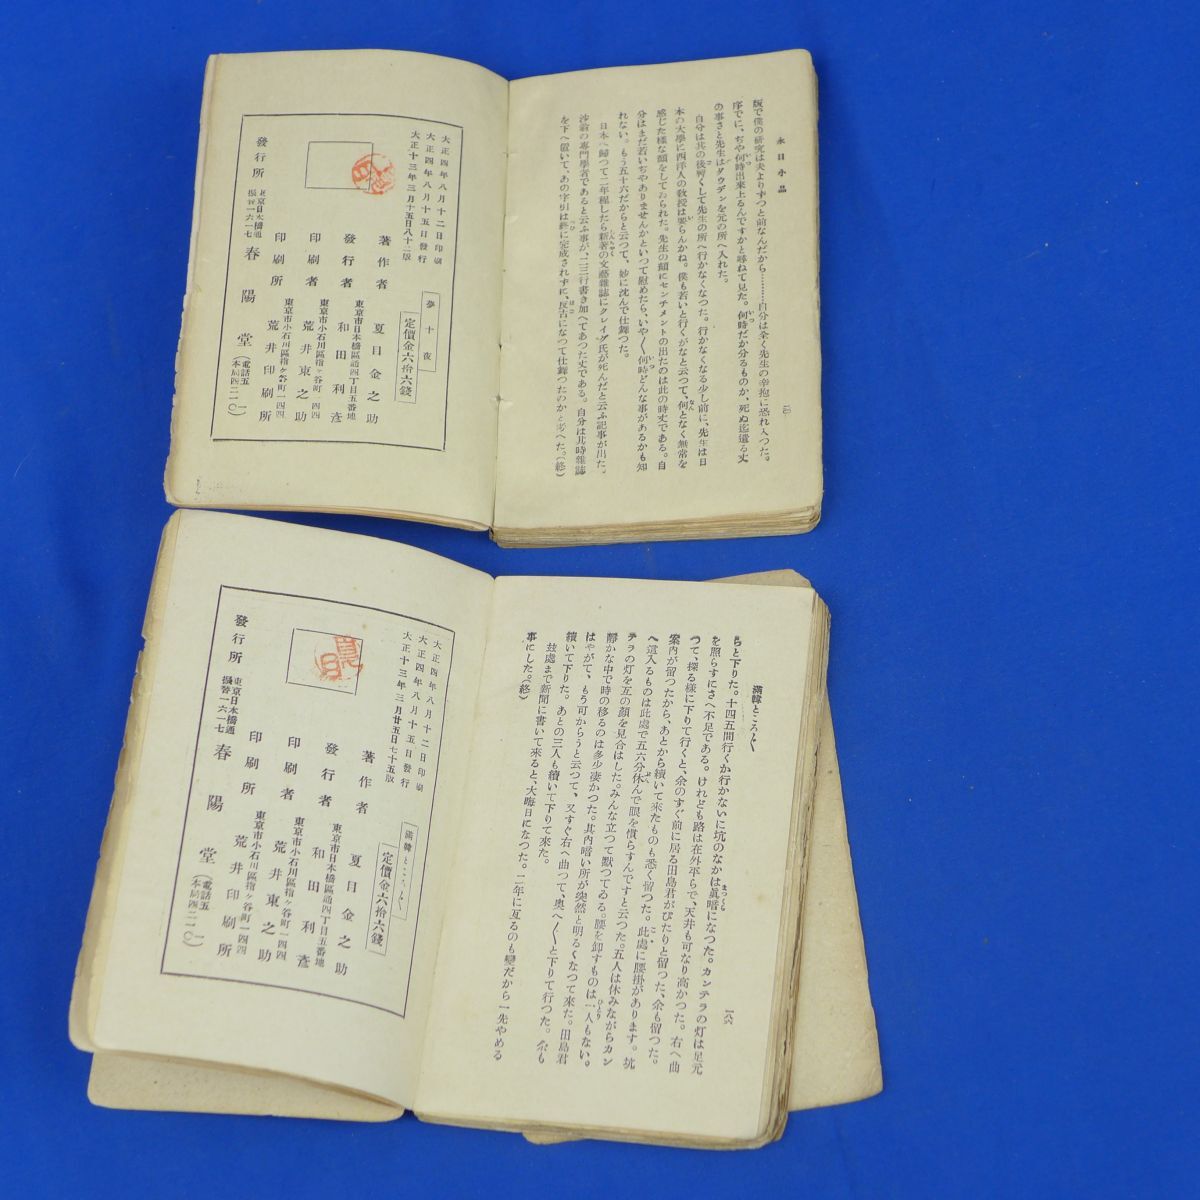 永日小品
版で僕の研究は夫よりずつと前なんだから………自分は全く先生の辛抱に恐れ入つた。
序でに、ぢや何時出來上るんですかと尋ねて見た。何時だか分るものか、死ぬ迄遣る丈
の事さと先生はダウデンを元の所へ入れた。
自分は其の後暫くして先生の所へ行かなくなつた。行かなくなる少し前に、先生は日
本の大學に西洋人の敎授は要らんかね。僕も若いと行くがなと云つて、何となく無常を
感じた樣な顏をしてゐられた。先生の顏にセンチメントの出たのは此の時丈である。自
分はまだ若いぢやありませんかといつて慰めたら、いや〳〵何時どんな事があるかも知
れない。もう五十六だからと云つて、妙に沈んで仕舞つた。
日本へ歸つて二年程したら新著の文藝雜誌にクレイグ氏が死んだと云ふ記事が出た。
沙翁の專門學者であると云ふ事が、二三行書き加へてあつた丈である。自分は其時雜誌
を下へ置いて、あの字引は終に完成されずに、反古になつて仕舞つたのかと考へた。(終)
大正四年八月十二日印刷
大正四年八月十五日發行
大正十三年三月十五日八十二版
夢十夜
定價金六拾六錢
著作者 夏目金之助
東京市日本橋區通四丁目五番地
發行者 和田利彥
東京市小石川區指ヶ谷町一四四
印刷者 荒井東之助
東京市小石川區指ヶ谷町一四四
印刷所 荒井印刷所
發行所 東京日本橋通 振替一六一七 春陽堂 (電話五一 本局四二一〇)
滿韓ところ〴〵
一八六
らと下りた。十四五間行くか行かないに坑のなかは眞暗になつた。カンテラの灯は足元
を照らすにさへ不足である。けれども路は存外平らで、天井も可なり高かつた。右へ曲
つて、探る樣に下りて行くと、余のすぐ前に居る田島君がぴたりと留つた、余も留つた。
案內が留つたから、あとから續いて來たものも悉く留つた。此處に腰掛があります。坑
へ這入るものは此處で五六分休んで眼を慣らすんですと云つた。五人は休みながらカン
テラの灯を互の顏を見合はした。みんな立つて默つてゐる。腰を卸すものは一人もない。
靜かな中で時の移るのは多少凄かつた。其內暗い所が突然と明るくなつて來た。田島君
はやがて、もう可からうと云つて、又すぐ右へ曲つて、奧へ〳〵と下りて行つた。余も
續いて下りた。あとの三人も續いて下りて來た。
玆處まで新聞に書いて來ると、大晦日になつた。二年に亙るのも變だから一先やめる
事にした。(終)
大正四年八月十二日印刷
大正四年八月十五日發行
大正十三年三月廿五日七十五版
滿韓ところ〴〵
定價金六拾六錢
著作者 夏目金之助
東京市日本橋區通四丁目五番地
發行者 和田利彥
東京市小石川區指ヶ谷町一四四
印刷者 荒井東之助
東京市小石川區指ヶ谷町一四四
印刷所 荒井印刷所
發行所 東京日本橋通 振替一六一七 春陽堂 (電話五一 本局四二一〇)